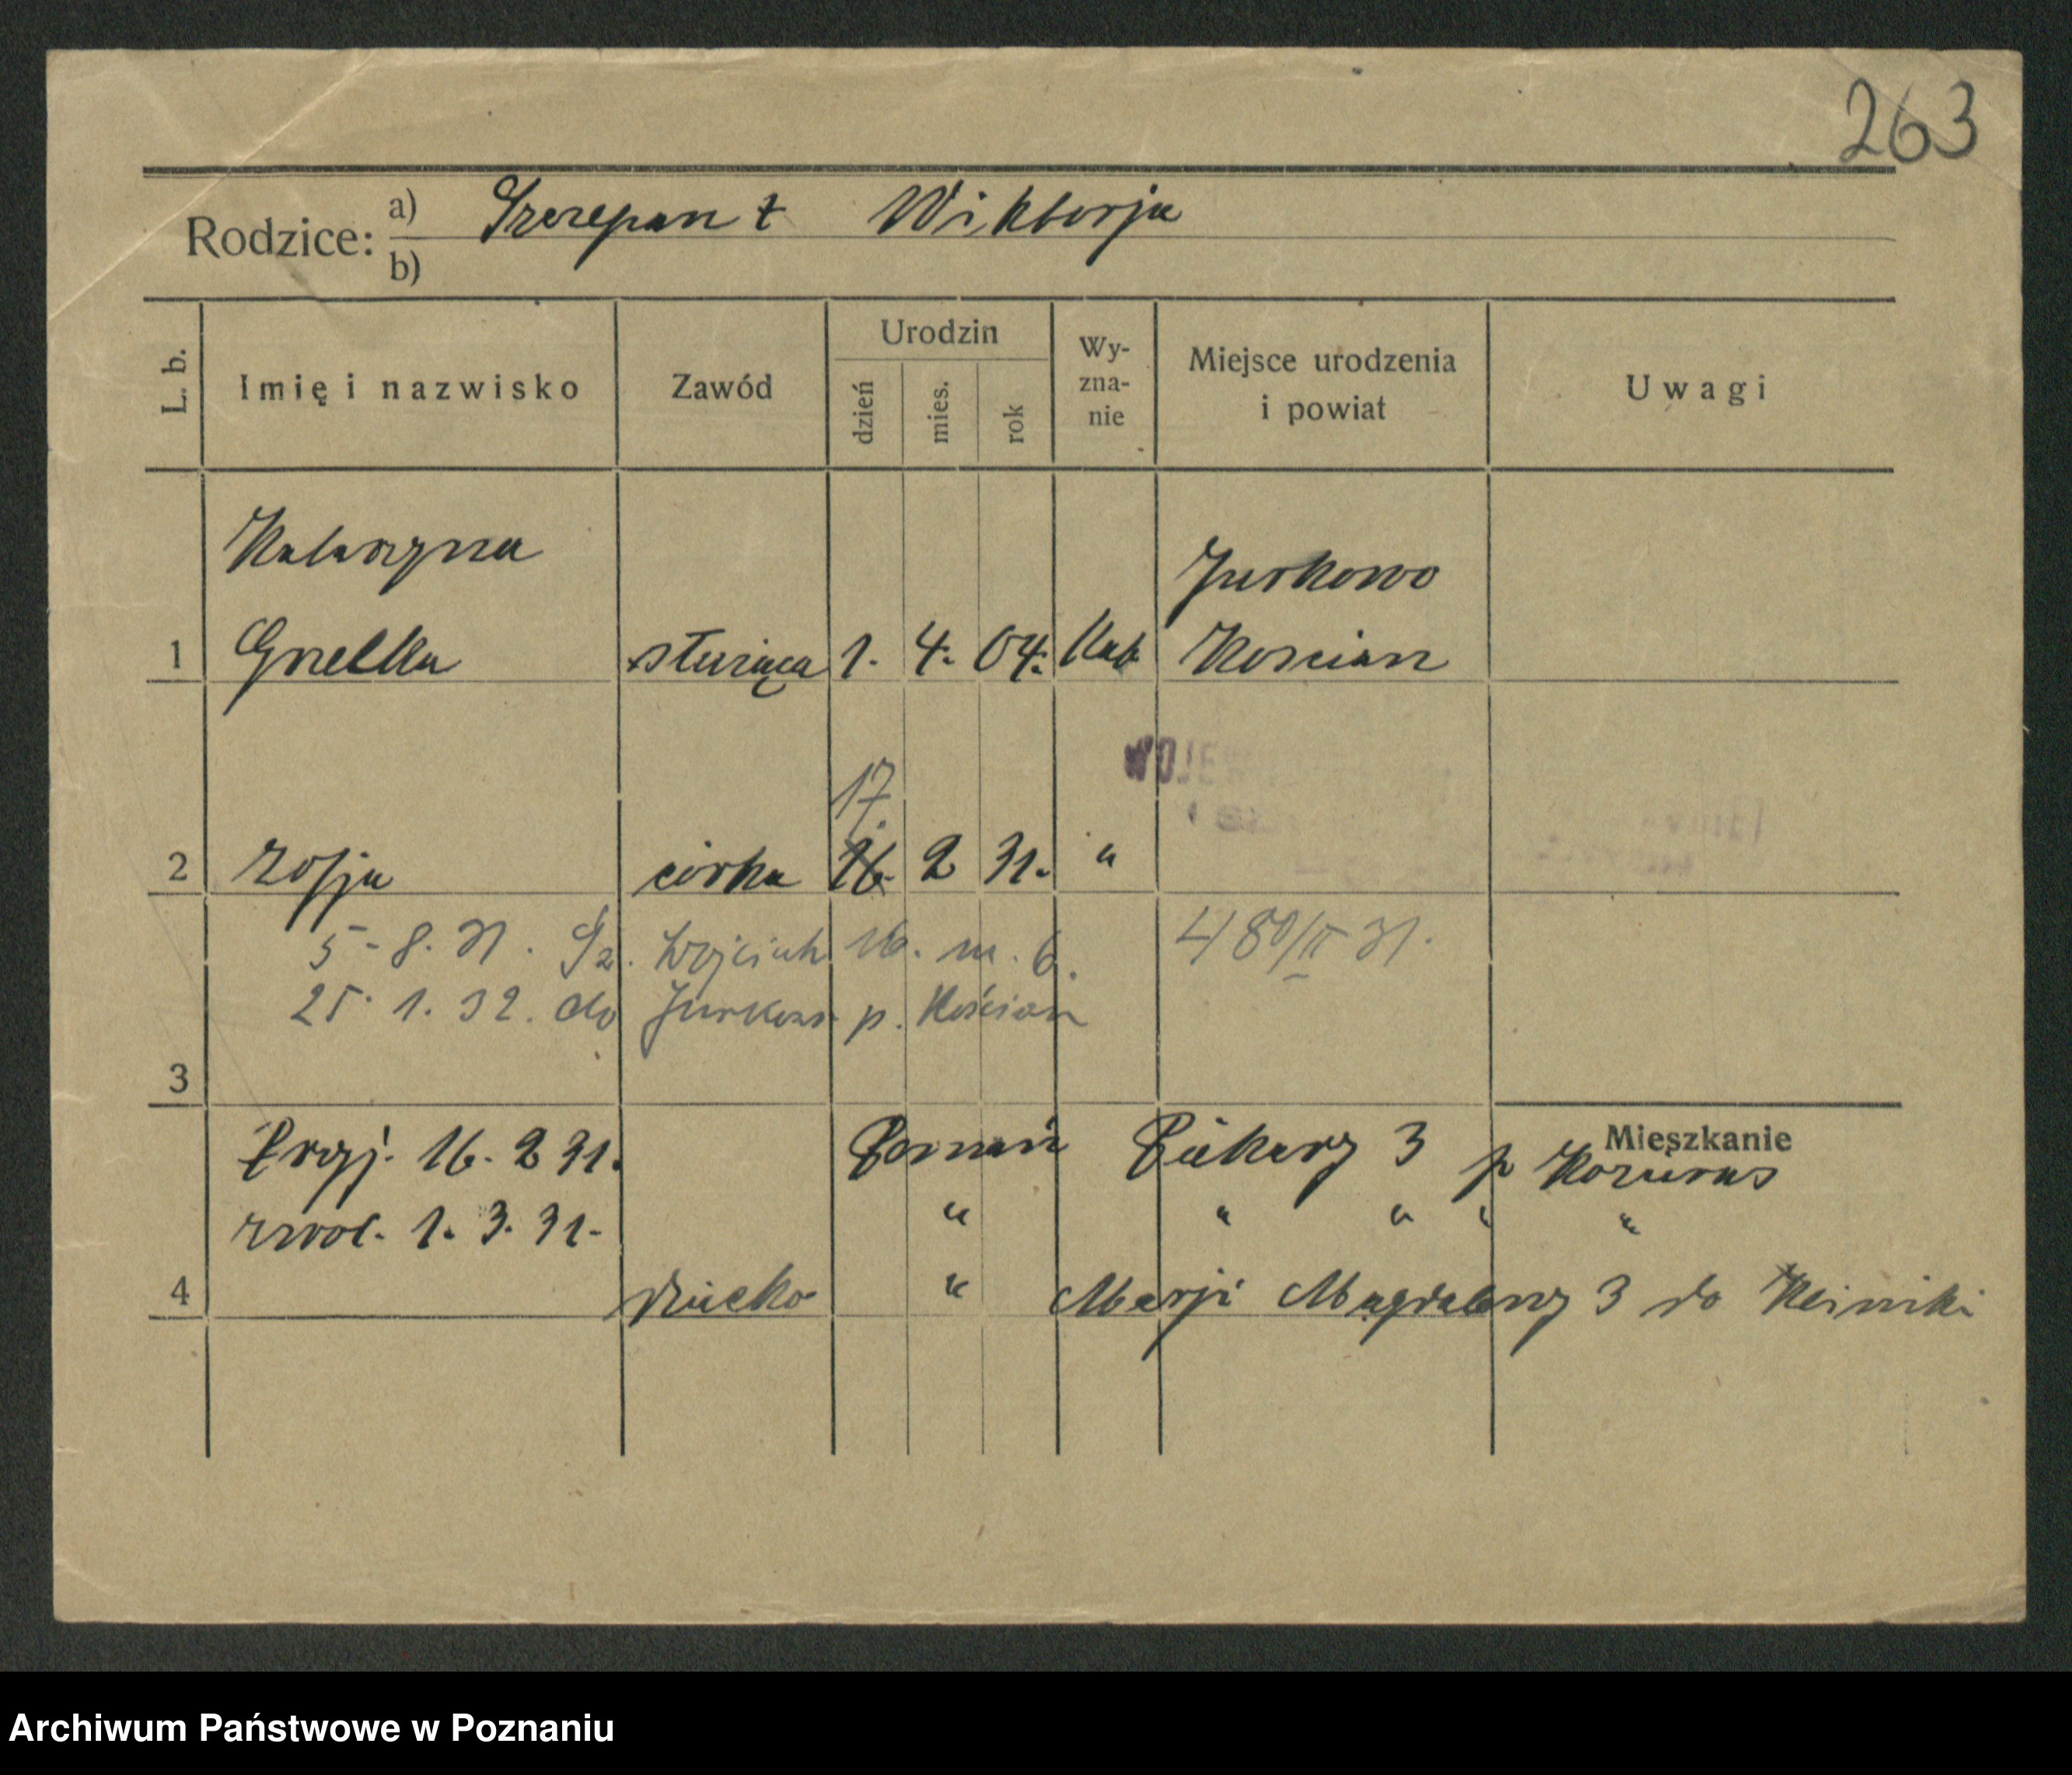 263
Rodzice: a) Szczepan † Wiktorja
b)
L. b. Imię i nazwisko Zawód Urodzin dzień mies. rok Wy-zna-nie Miejsce urodzenia i powiat Uwagi
Katarzyna Jurkowo
1 służąca 1. 4. 04. Kat. Koscian
WOJE
17.
2 Zofja córka 16. 2 31. "
5-8.31. Wojciech 16. m. 6. 480/II 31.
25.1.32. do Jurkowo p. Kościan
3
Mieszkanie
Przyj. 16. 2 31. Poznań Piekary 3 p
zwol. 1. 3. 31. " " " " "
4 dziecko " Marji Magdaleny 3 do Kliniki
Archiwum Państwowe w Poznaniu